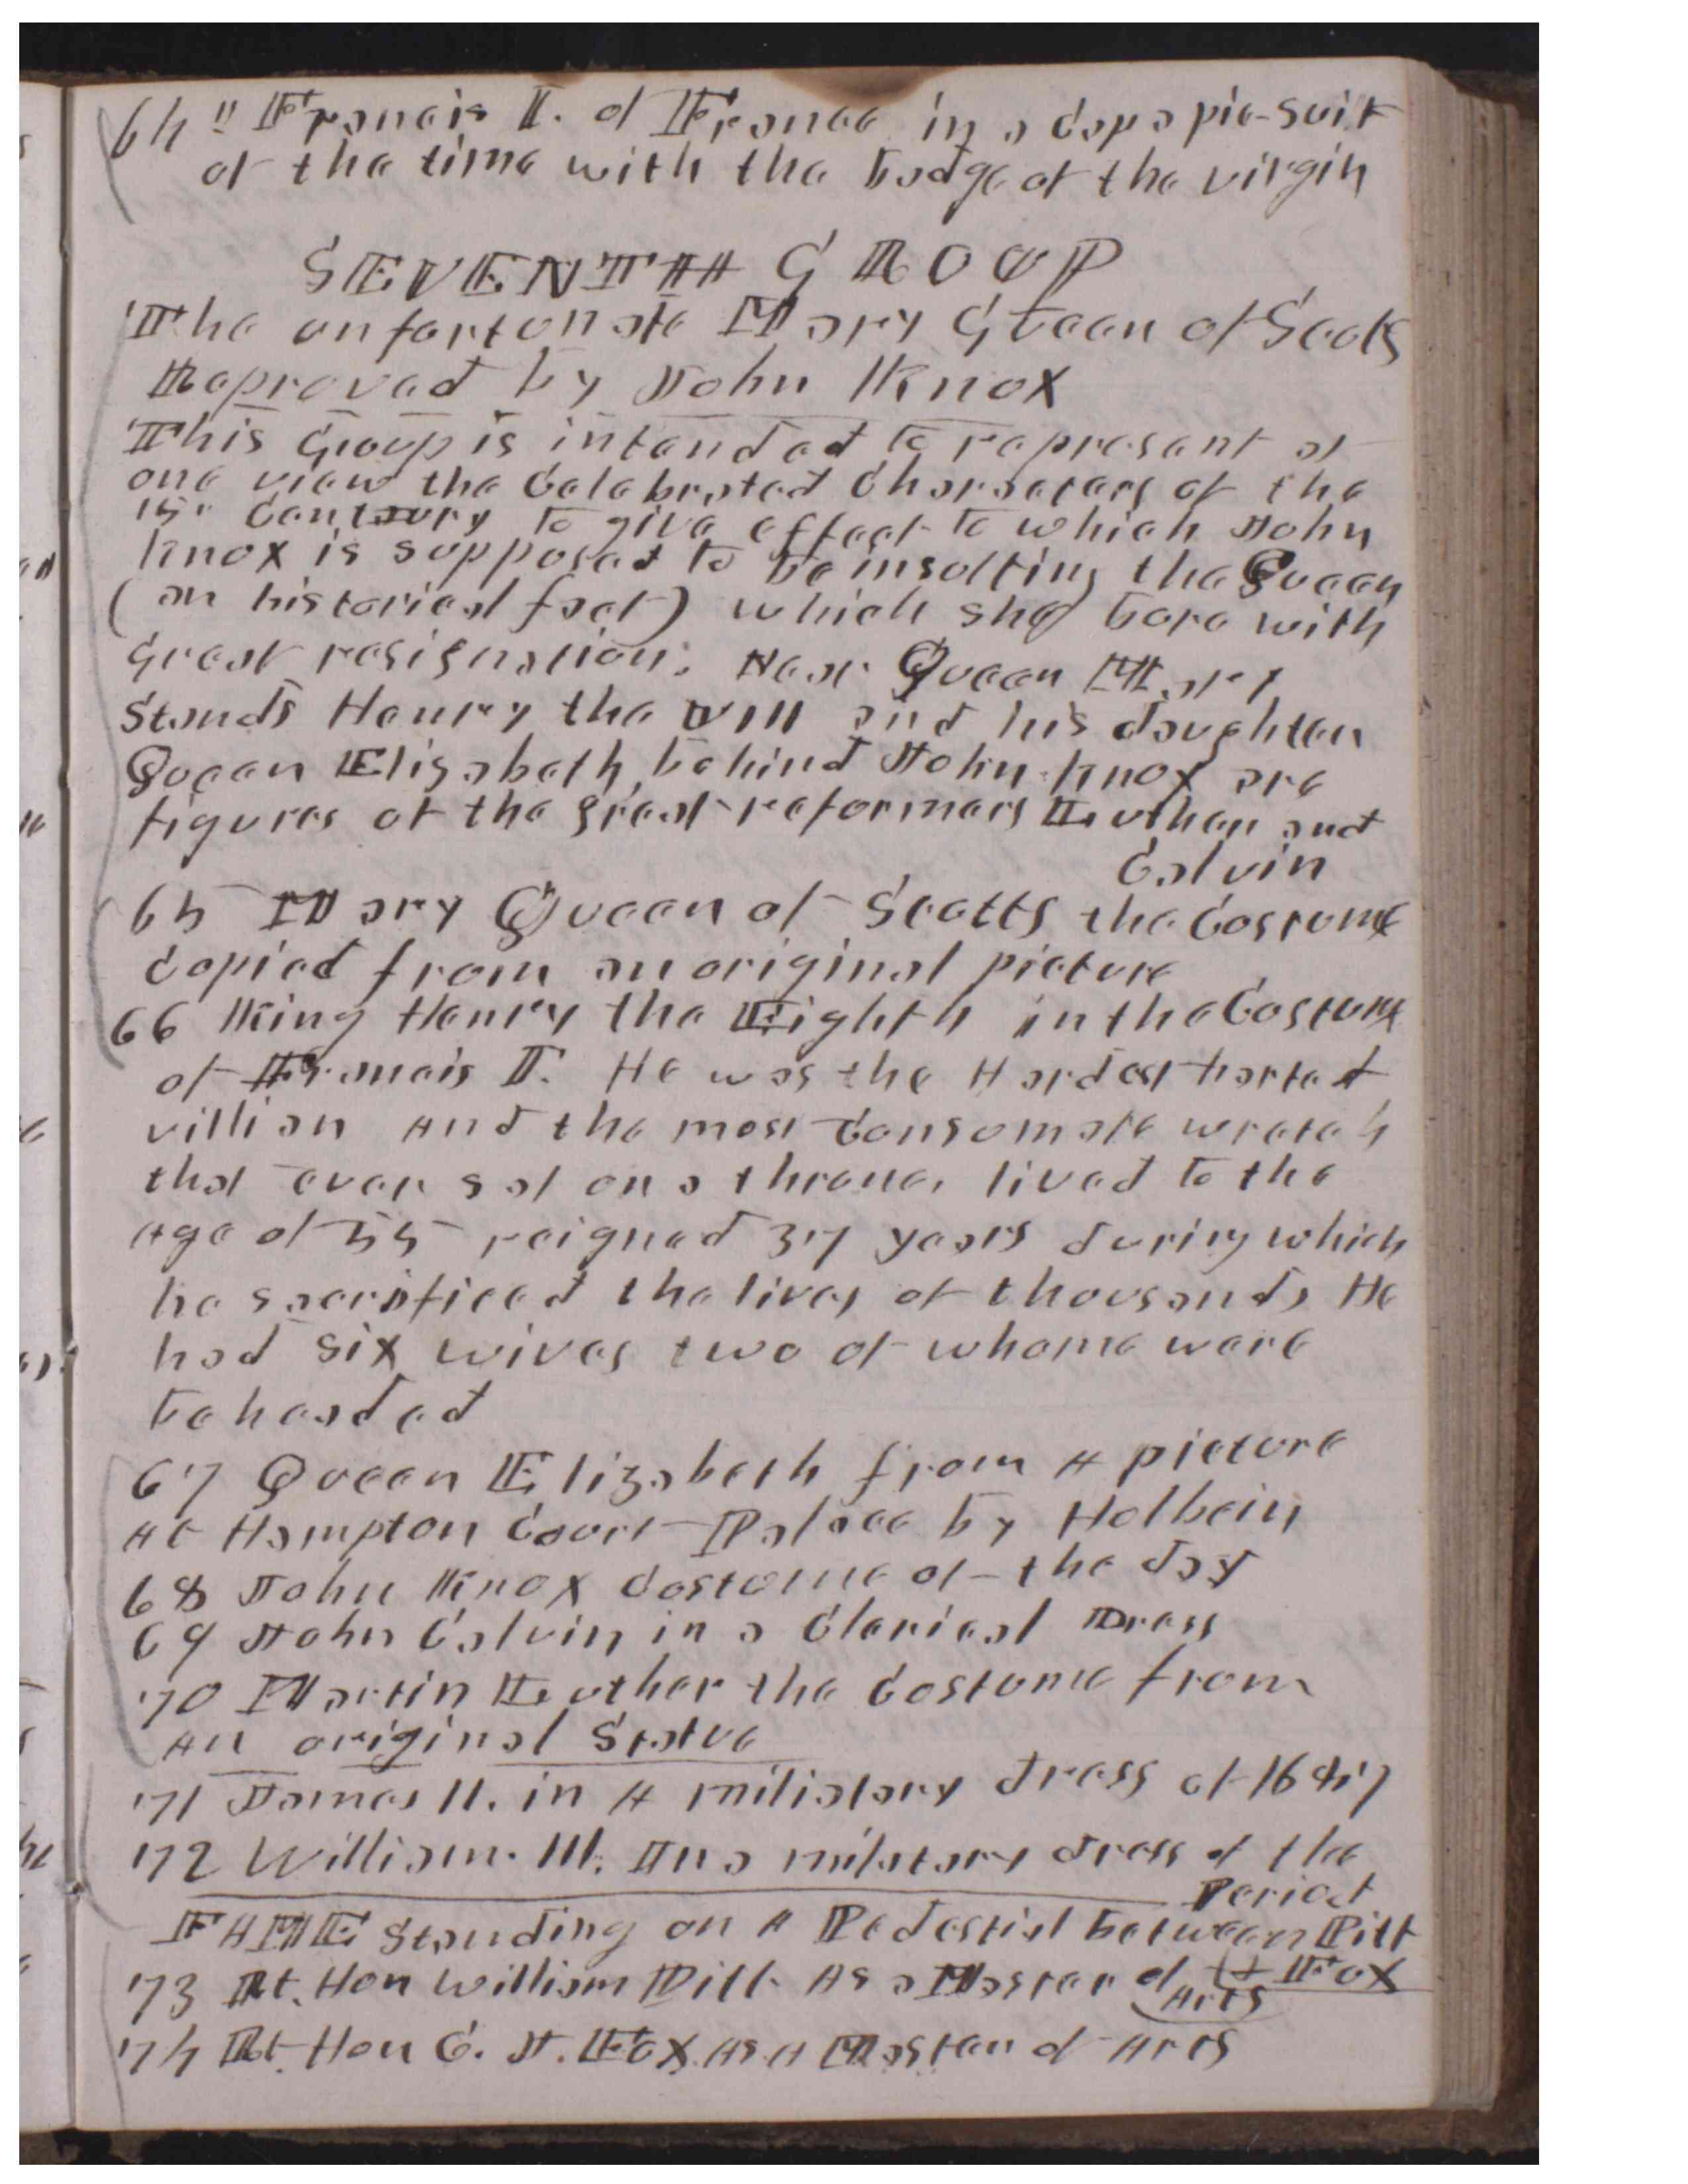 64 " Francis I. of France in a cap a pie-suit
of the time with the badge of the virgin
SEVENTH GROUP
The unfortunate Mary Queen of Scots
Reproved by John Knox
This Group is intended to represent at
one view the Celebrated Characters of the
15" Century to give effect to which John
Knox is supposed to be insulting the Queen
(an historical fact) which she bore with
great resignation. Near Queen Mary
Stands Henry the VIII and his daughter
Queen Elisabeth behind John Knox are
figures of the great reformers Luther and
Calvin
65 Mary Queen of Scotts the Costume
copied from an original picture
66 King Henry the Eighth in the Costume
of Francis I. He was the Hardest harted
villian And the most Consumate wretch
that ever sat on a throne, lived to the
Age of 55 reigned 37 years during which
he sacrificed the lives of thousands He
had six wives two of whome were
beheaded
67 Queen Elizabeth from A picture
At Hampton Court Palace by Holbein
68 John Knox Costume of the day
69 John Calvin in a Clerical Dress
70 Martin Luther the Costume from
An original Statue
71 James II. in A miliatary dress of 1687
72 William. III. In a milatary dress of the
Period
FAME Standing on A Pedestial between Pitt
73 Rt. Hon William Pitt As a Master of & Fox
Arts
74 Rt. Hon C. J. Fox As A Master of Arts